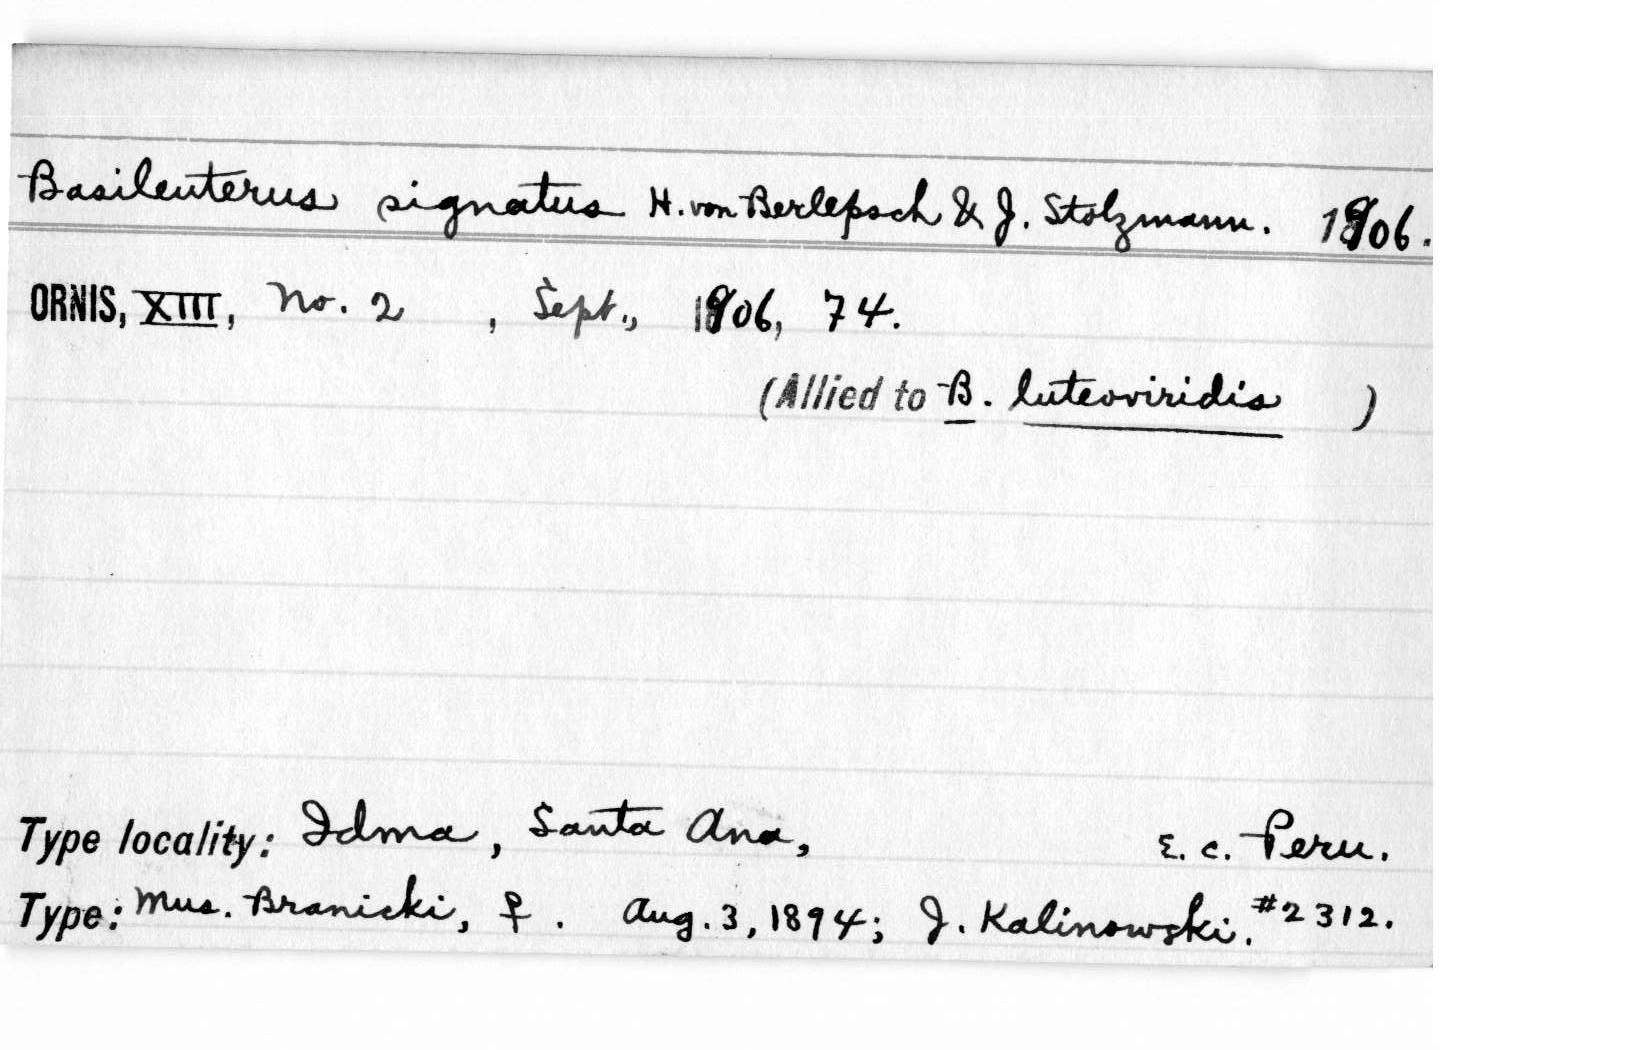 Basileuterus signatus H. von Berlepsch & J. Stolzmann. 1906.
ORNIS, XIII, No. 2 , Sept., 1906, 74.
(Allied to B. luteoviridis )
Type locality: Idma, Santa Ana, E. C. Peru.
Type: Mus. Branicki, ♀. Aug. 3, 1894; J. Kalinowski. #2312.